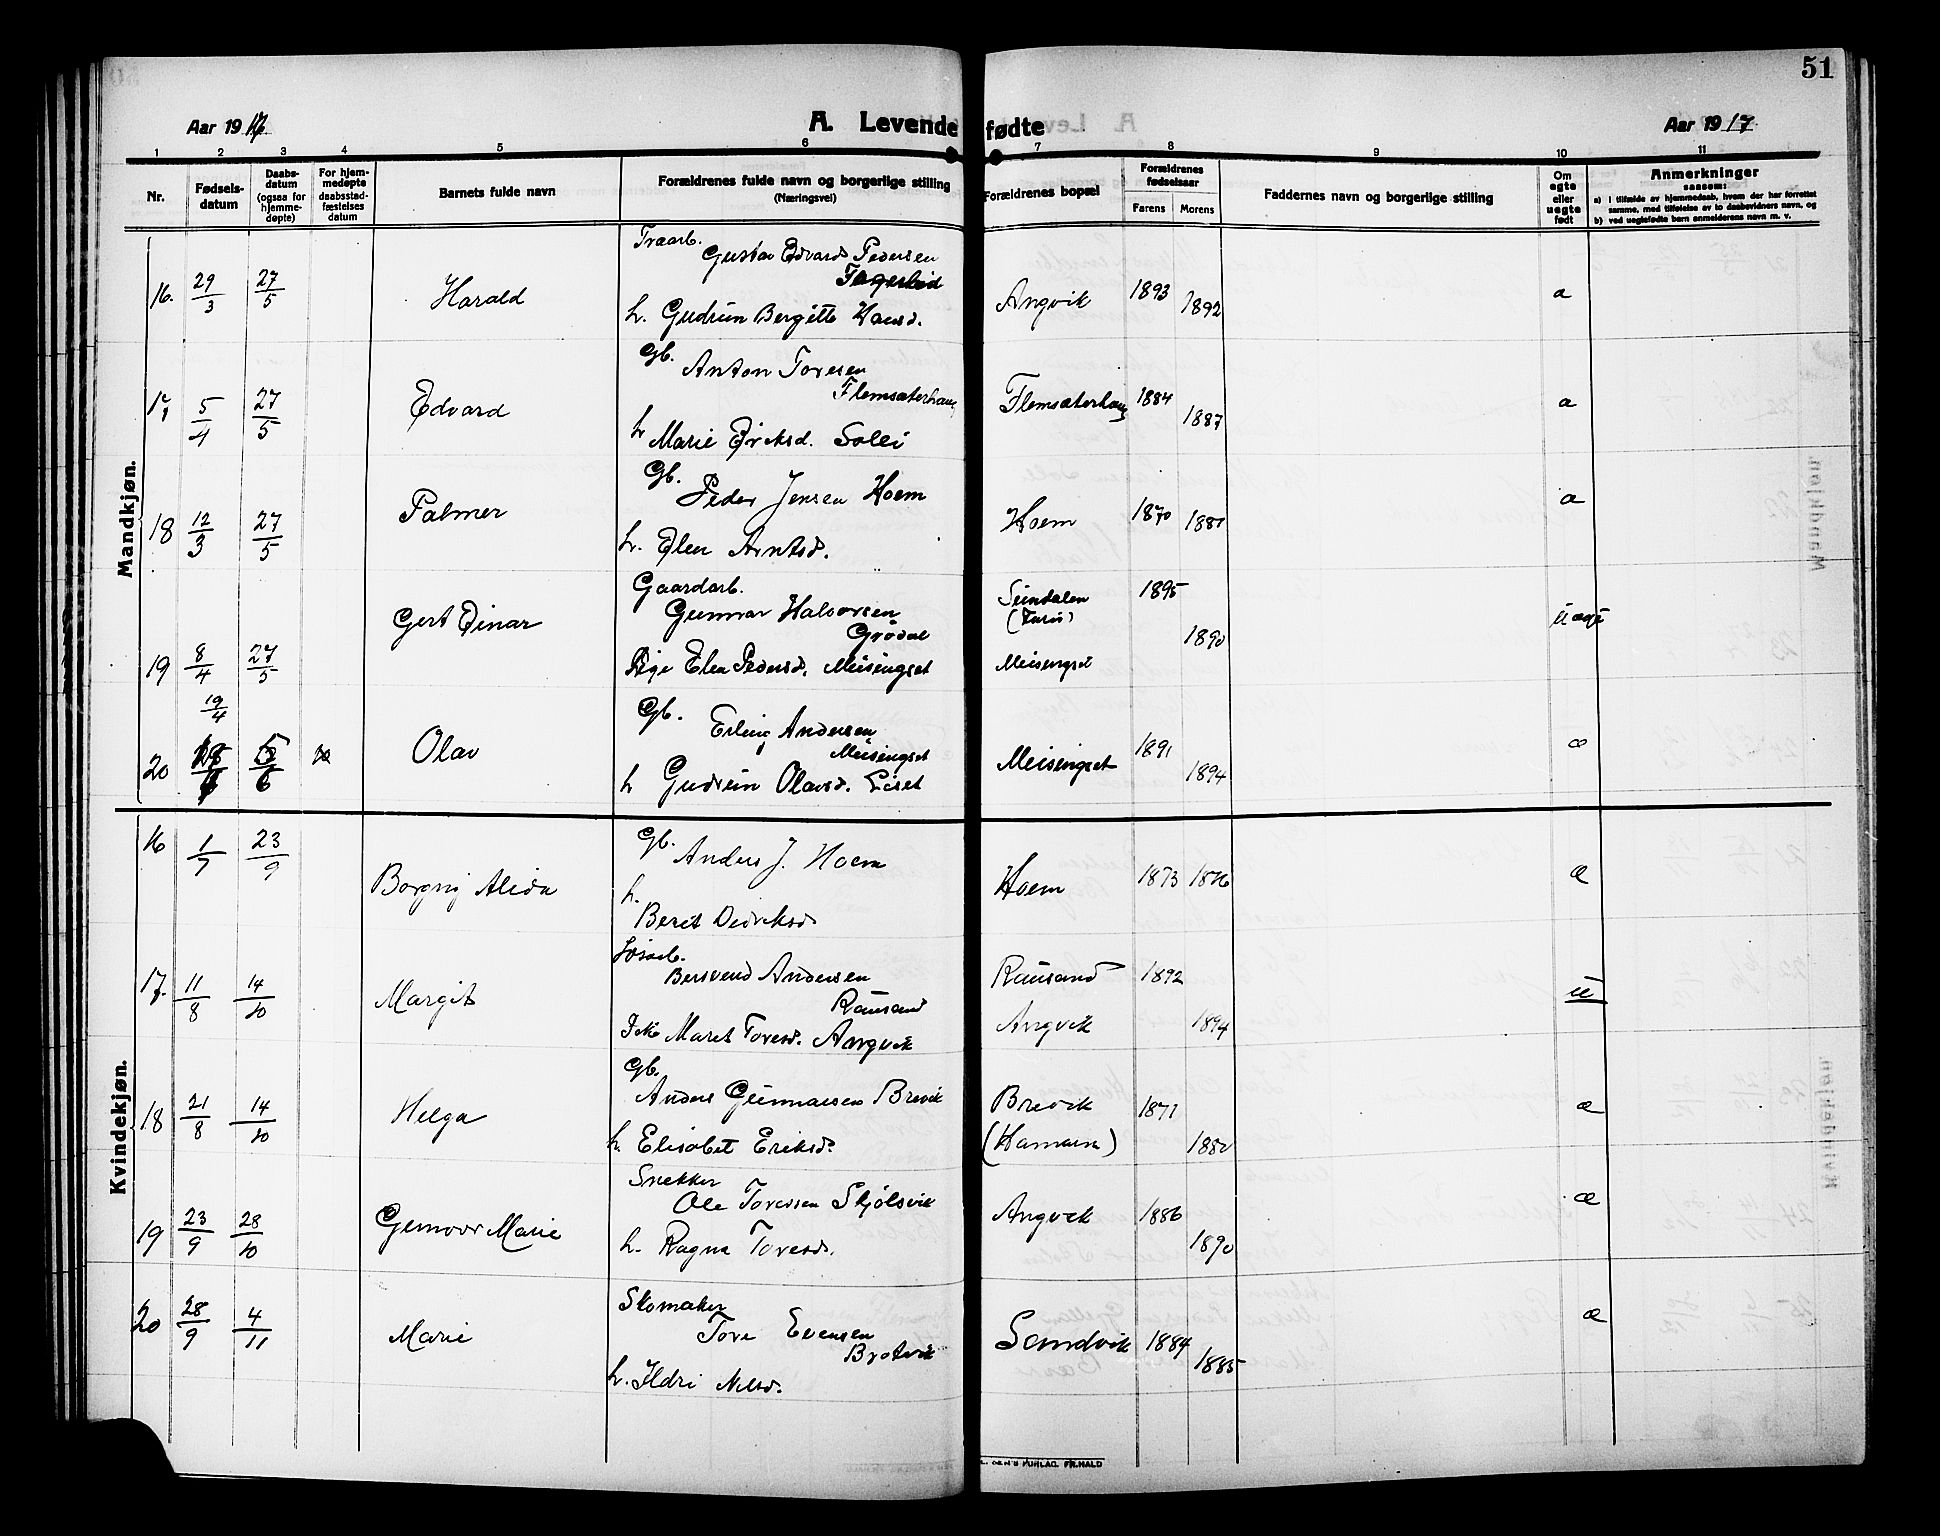 51
Aar 1917
A. Levendefødte
Aar 1917
1 2 3 4 5 6 7 8 9 10 11
Nr.
Fødselsdatum
Daabsdatum (ogsaa for hjemmedøpte)
For hjemmedøpte daabsstadfæstelses datum
Barnets fulde navn
Forældrenes fulde navn og borgerlige stilling
(Næringsvei)
Forældrenes bopæl
Forældrenes fødselsaar
Farens
Morens
Faddernes navn og borgerlige stilling
Om egte eller uegte født
Anmerkninger
saasom:
a) i tilfælde av hjemmedaab, hvem der har forrettet samme, med tilføielse av to daabsvidners navn, og
b) ved uegtefødte barn anmelderens navn m. v.
Mandkjøn.
Traarb.
Gustav Edvard Pedersen
16. 29/3 27/5 Harald Angvik 1893 1892 a
h. Gudrun Bergitte Hansd.
Gb.
Anton Toresen
Flemsæterhaug
17. 5/4 27/5 Edvard Flemsæterhaug 1884 1887 a
h Marie Eriksd. Solli
Gb.
Peder Jensen Hoem
18 12/3 27/5 Palmer Hoem 1870 1881 a
h. Elen Arntsd.
Gaardarb.
Gunnar Halvorsen
Grødal
Gert Einar 1895 1890
19 8/4 27/5 Pige Elen Pedersd. Meisingset Meisingset
Gb.
Erling Andersen
Meisingset
19/4
20 5/6 Olav Meisingset 1891 1894
h Gudrun Olavsd. Liset
Kvindekjøn.
Gb.
Anders J. Hoem
16 1/7 23/9 Borgny Alida Hoem 1873 1876 æ
h.
Berit Didriksd
Løsarb.
Bersvend Andersen
Rausand
17. 11/8 14/10 Margit Rausand 1892 u
Pike Maret Toresd. Angvik Angvik 1894
Gb.
Anders Gunnarsen Brevik
18 21/8 14/10 Helga Brevik 1871 æ
(Hamarn) 1880
h. Elisabet Eriksd.
Snekker
Ole Toressen Skjølsvik
19 23/9 28/10 Gunvor Marie Angvik 1886 1890 æ
h. Ragna Toresd.
Skomaker
Tore Evensen
Brotvik
20 28/9 4/11 Marie Sandvik 1884 1885 æ
h. Ildri Nilsd.
FR. HALD